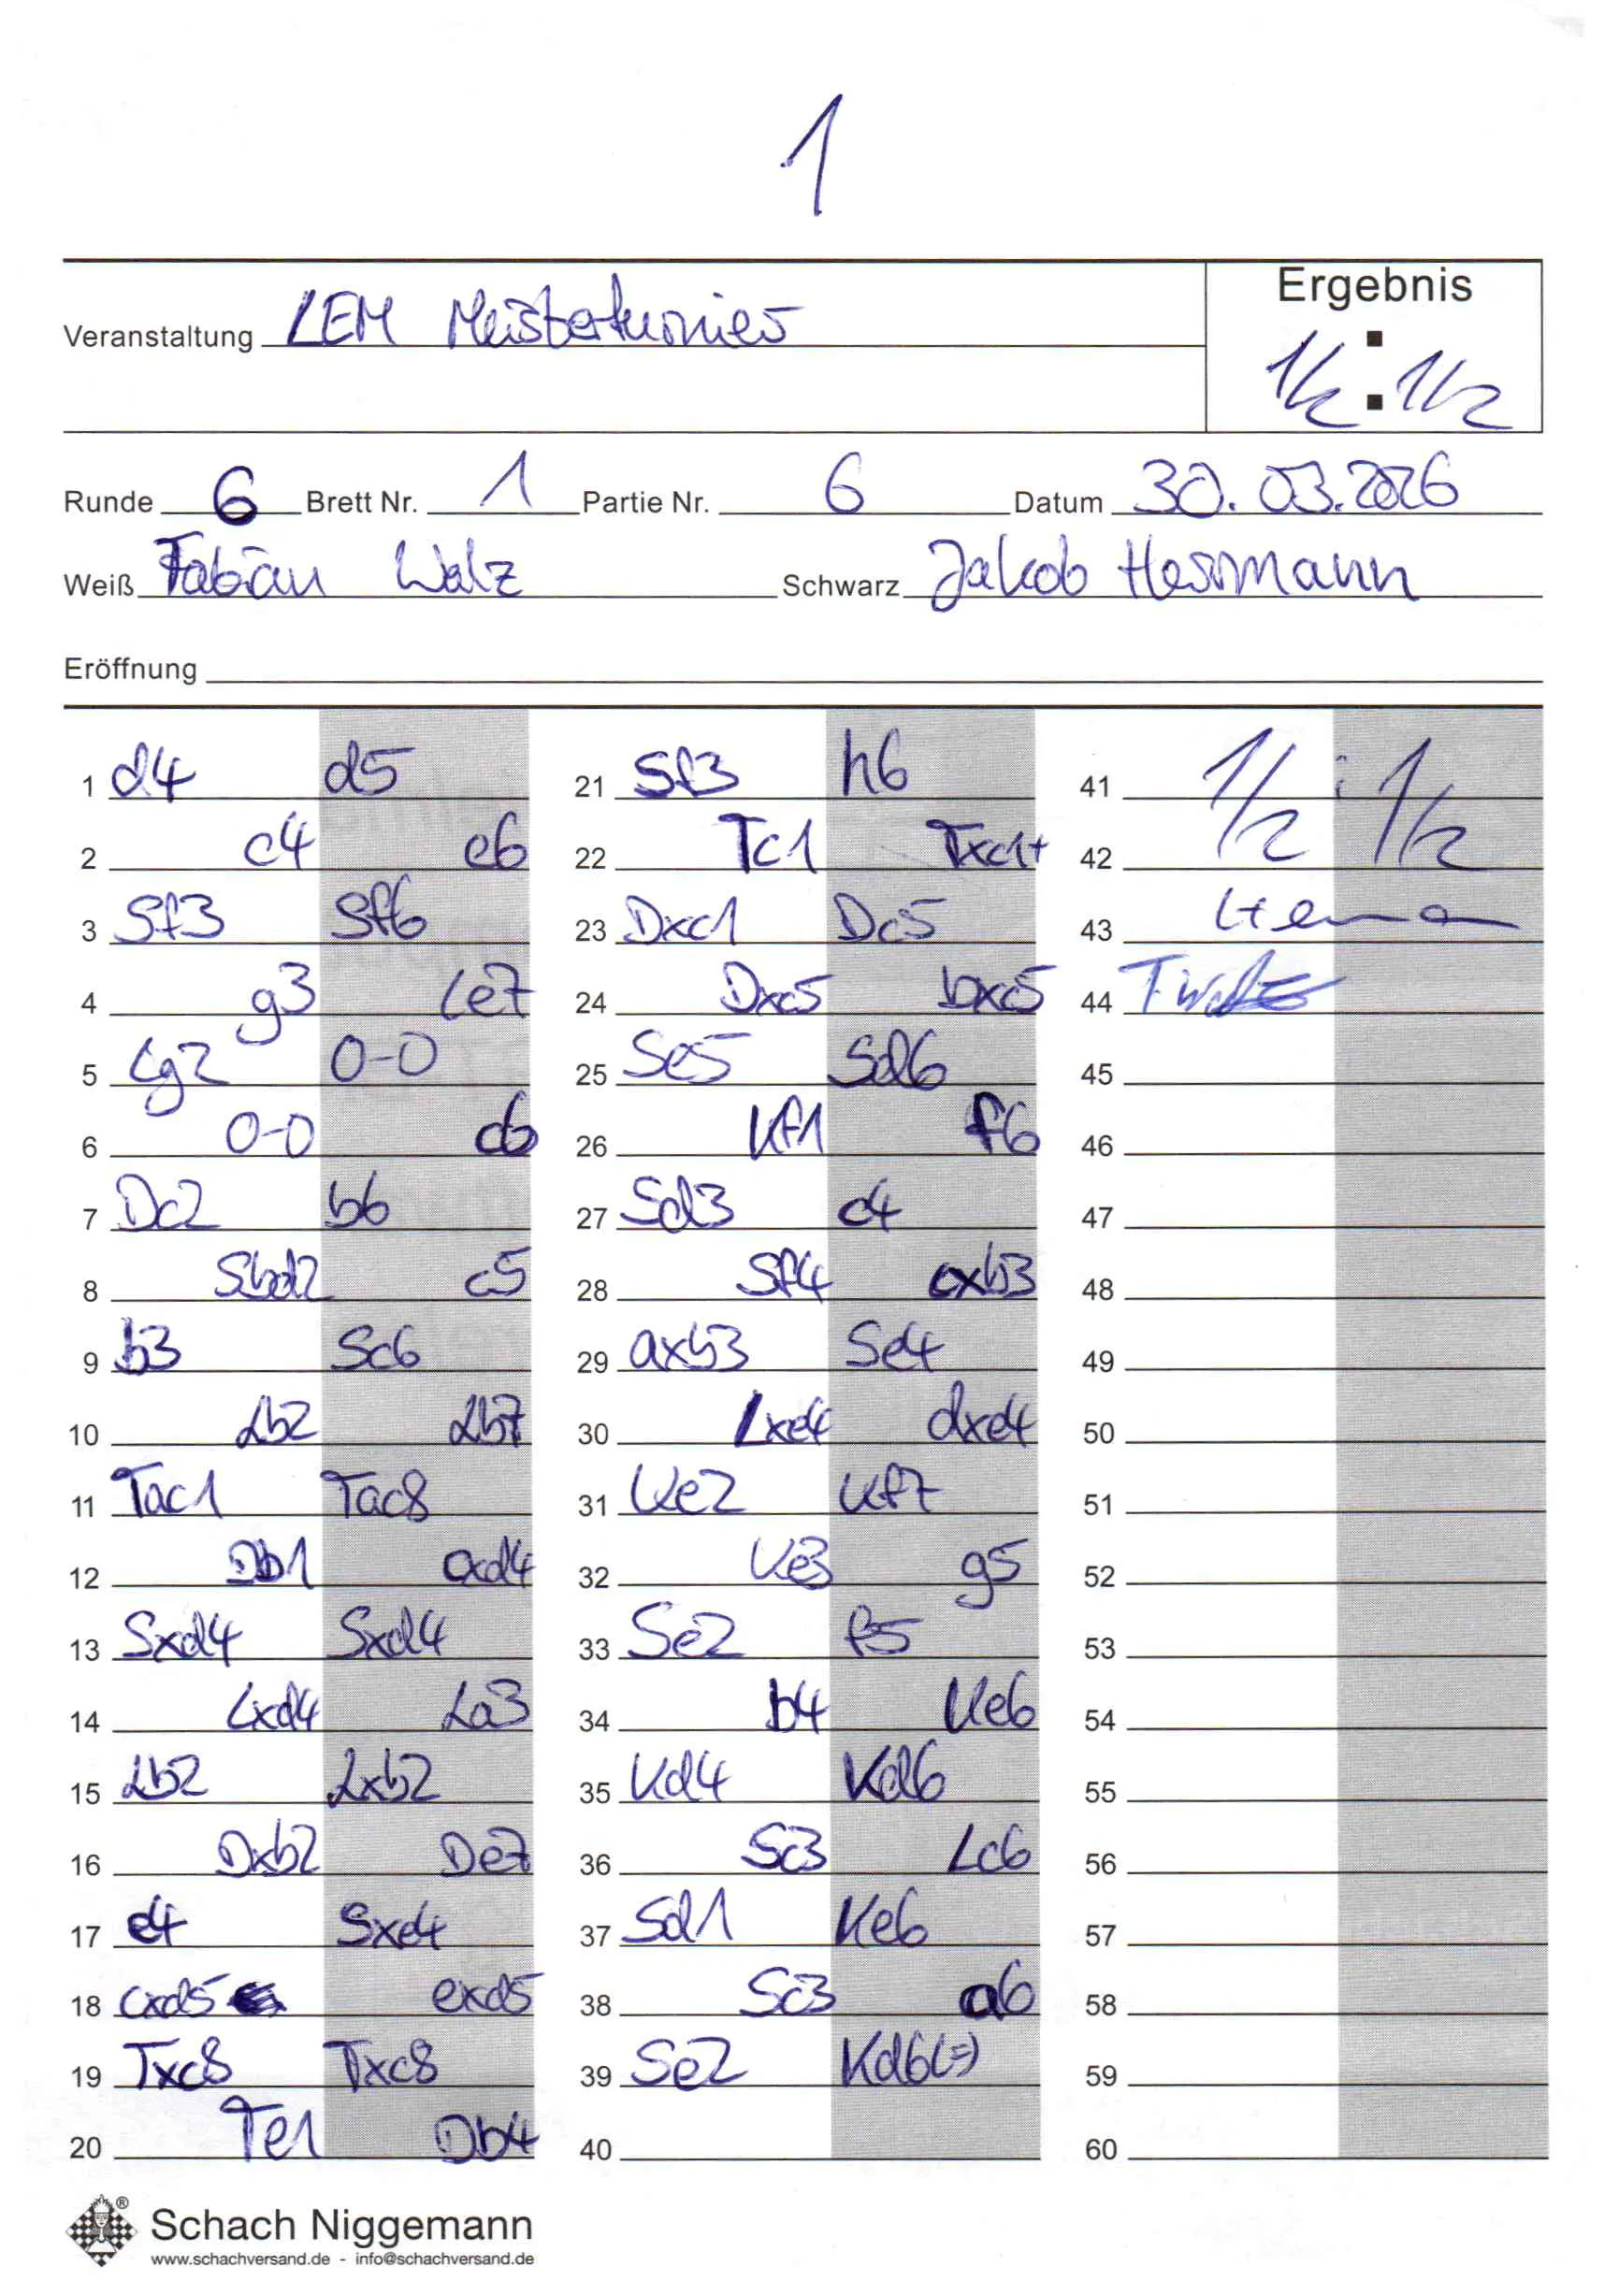 1
Ergebnis
Veranstaltung LEM Meisterturnier
1/2 : 1/2
Runde 6 Brett Nr. 1 Partie Nr. 6 Datum 30.03.2026
Weiß Fabian Walz Schwarz Jakob Herrmann
Eröffnung
1 d4 d5
2 c4 e6
3 Sf3 Sf6
4 g3 Le7
5 Lg2 0-0
6 0-0 c6
7 Dc2 b6
8 Sbd2 c5
9 b3 Sc6
10 Lb2 Lb7
11 Tac1 Tac8
12 Db1 cxd4
13 Sxd4 Sxd4
14 Lxd4 La3
15 Lb2 Lxb2
16 Dxb2 De7
17 e4 Sxe4
18 cxd5 exd5
19 Txc8 Txc8
20 Te1 Db4
21 Sf3 h6
22 Tc1 Txc1+
23 Dxc1 Dc5
24 Dxc5 bxc5
25 Se5 Sd6
26 Kf1 f6
27 Sd3 c4
28 Sf4 cxb3
29 axb3 Se4
30 Lxe4 dxe4
31 Ke2 Kf7
32 Ke3 g5
33 Se2 f5
34 b4 Ke6
35 Kd4 Kd6
36 Sc3 Lc6
37 Sd1 Ke6
38 Sc3 a6
39 Se2 Kd6(=)
40
41 1/2 : 1/2
42
43
44
45
46
47
48
49
50
51
52
53
54
55
56
57
58
59
60
Schach Niggemann
www.schachversand.de - info@schachversand.de